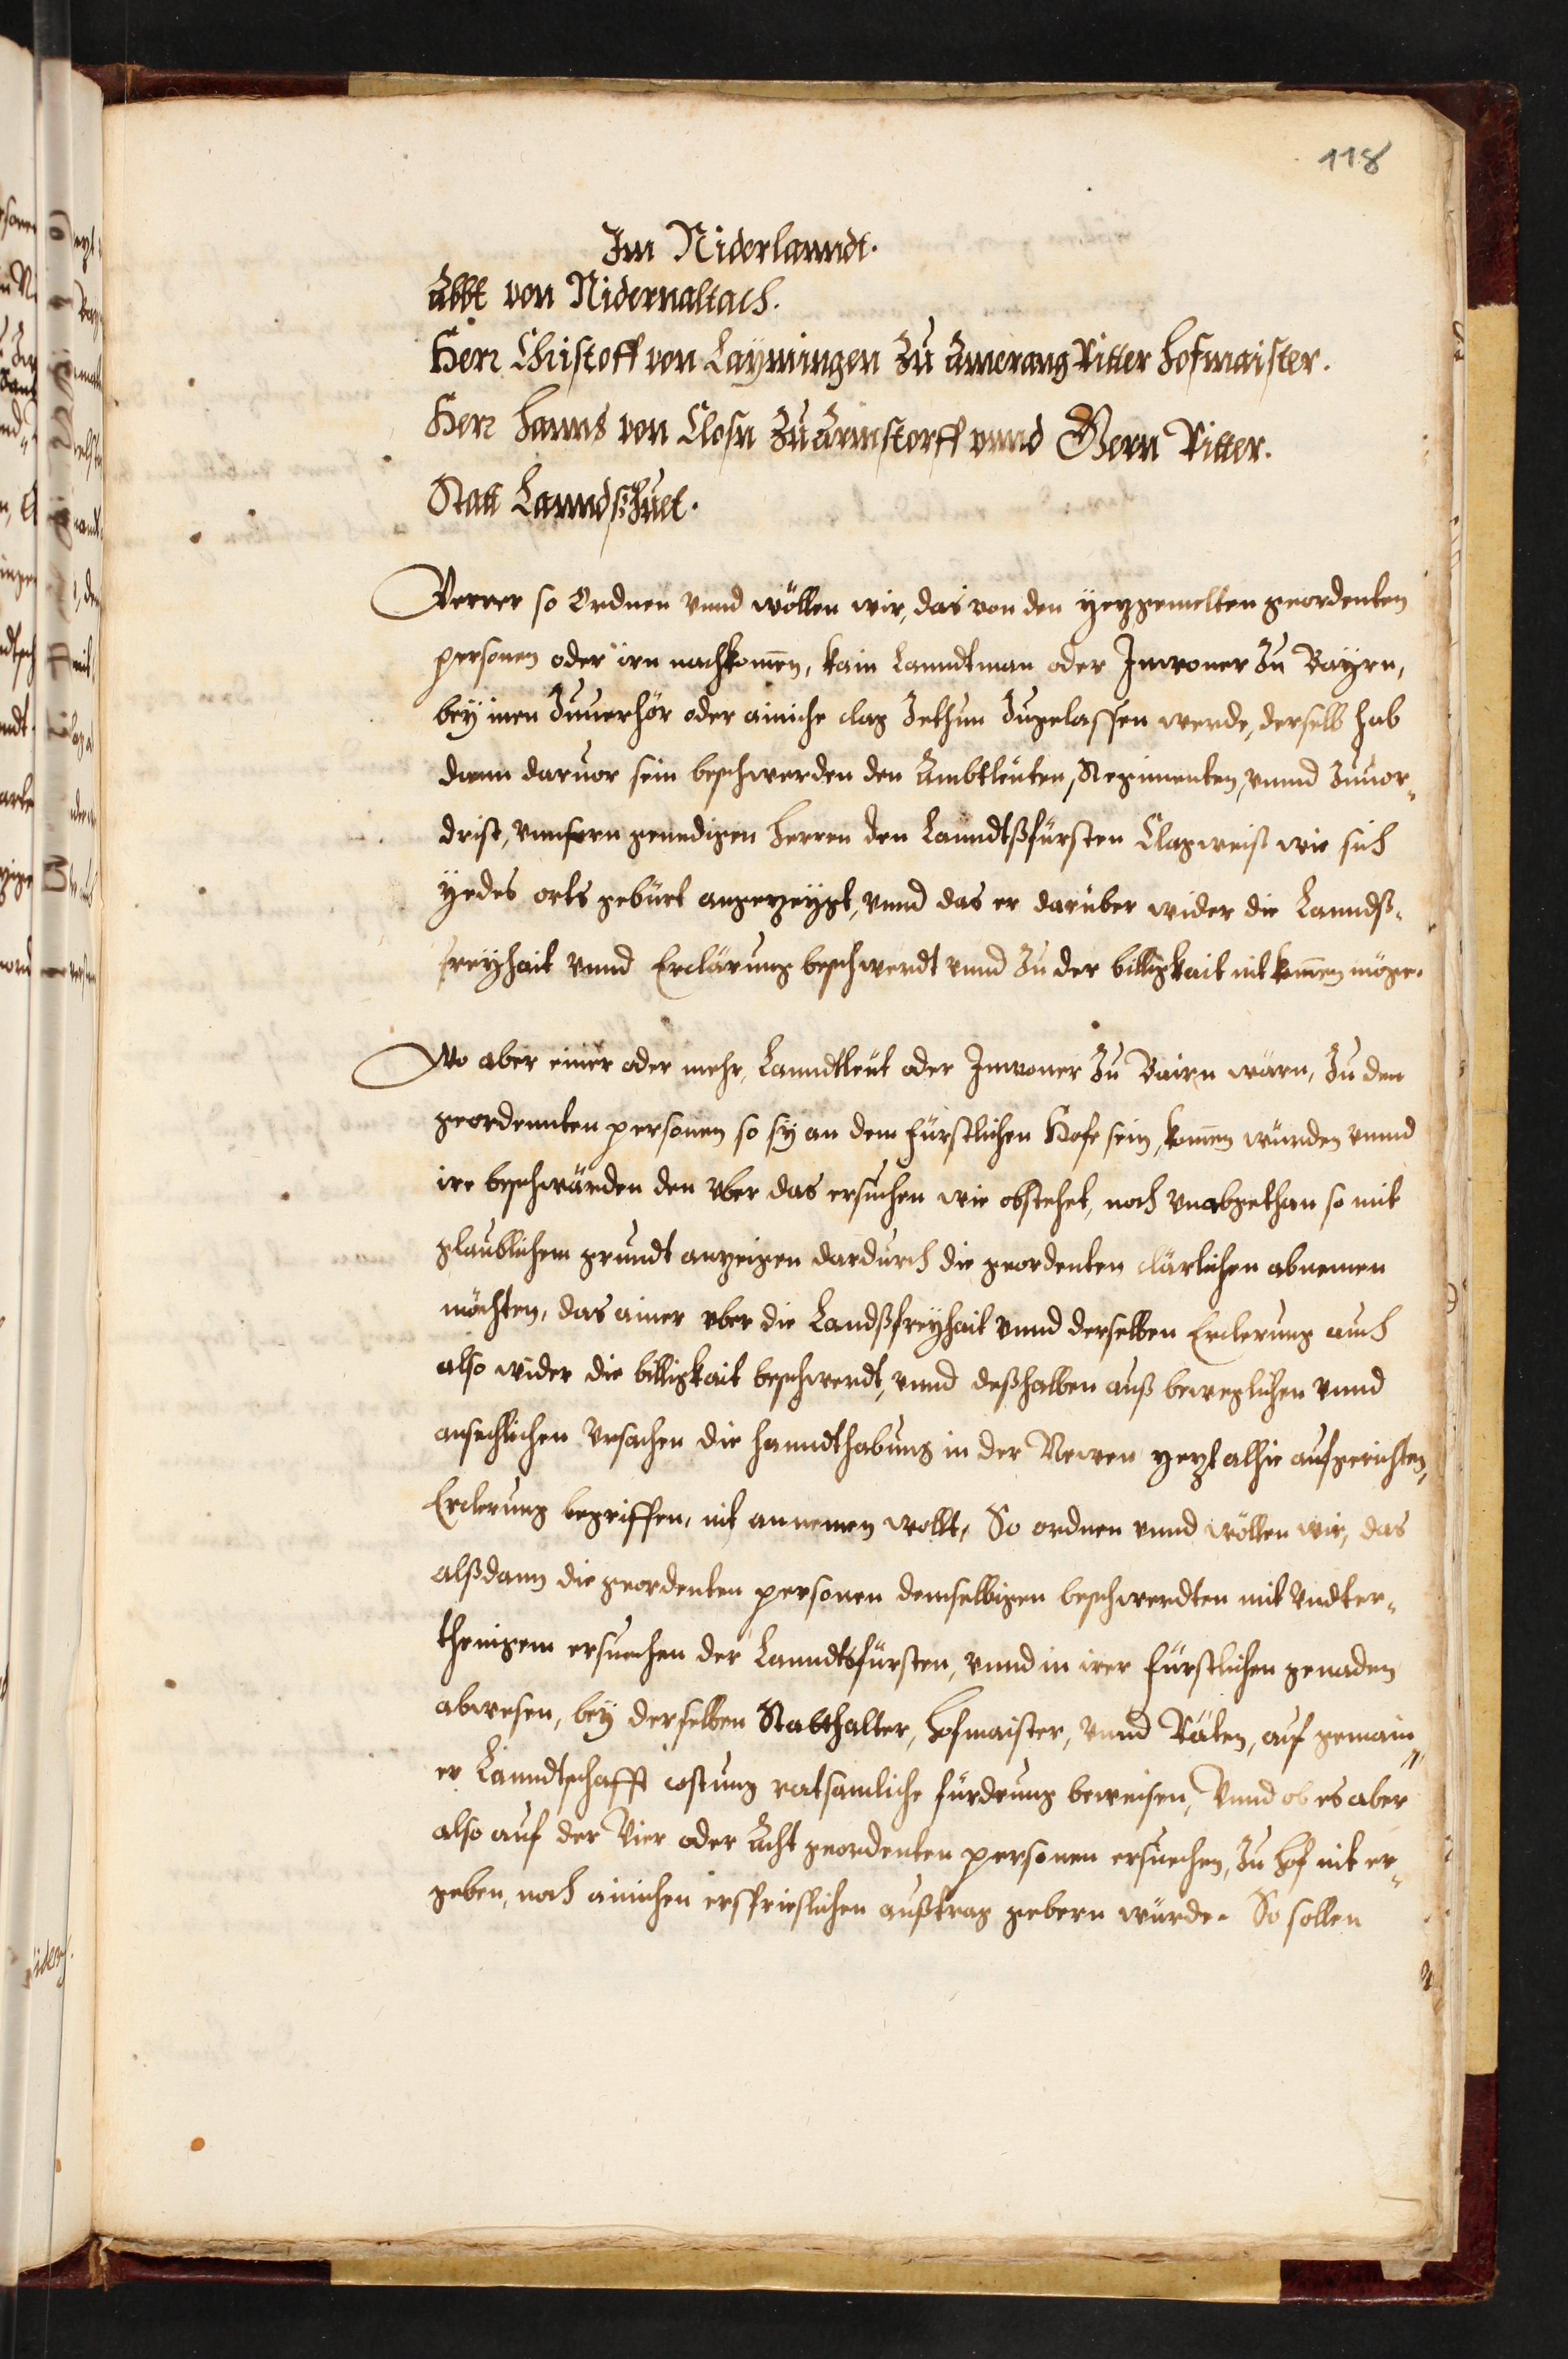 118
Im Niderlanndt.
Abbt von Nidernaltach.
Herr Christoff von Laymingen zu Amerang Ritter hofmaister.
Herr Hanns von Closn zu Arnstorff vnnd Gern Ritter.
Statt Lanndßhuet.
Verrer so Ordnen vnnd wöllen wir, das von den yezgemelten geordenten
personen oder irn nachkomen, kain Lanndtman oder Inwoner zu Bayrn,
bey inen zuuerhör oder ainiche clag zethun zugelassen werde, derselb hab
dann daruor sein beschwerden den Ambtleuten, Regimenten, vnnd zuuor-
drist, vnnsern genedigen herren den Lanndtßfürsten Clagweiß wie sich
yedes orts gebürt angezeygt, vnnd das er darüber wider die Lanndß-
freyhait vnnd Erclärung beschwerdt vnnd zu der billigkait nit komen möge.
Wo aber einer oder mehr, Lanndtleut oder Inwoner zu Bairn wärn, zu den
geordennten personen so sy an dem fürstlichen Hofe sein, komen würden vnnd
ire beschwärden den vber das ersuchen wie obstehet, noch vnabgethan so mit
glaublichem grundt anzeigen dardurch die geordenten clärlichen abnemen
möchten, das ainer vber die Landßfreyhait vnnd derselben Erclerung auch
also wider die billigkait beschwerdt, vnnd deßhalben auß beweglichen vnnd
ansechlichen vrsachen die hanndthabung in der Newen yezt alhie aufgerichten,
Erclerung begriffen, nit annemen wollt, So ordnen vnnd wöllen wir, das
alßdann die geordenten personen demselbigen beschwerdten mit vndter-
thenigem ersuechen der Lanndtsfürsten, vnnd in irer fürstlichen genaden
abwesen, bey derselben Statthalter, hofmaister, vnnd Räten, auf gemain-
er Lanndtschafft costung ratsamliche fürdrung beweisen, Vnnd ob es aber
also auf der Vier oder Acht geordenten personen ersuechen, zu hof nit er-
geben, noch ainichen ersprießlichen außtrag gebern würde. So sollen